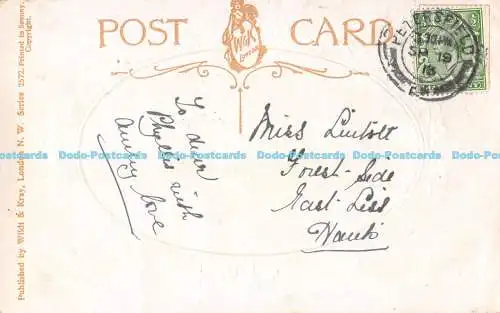 POST CARD
W&K
LONDON
PETERSFIELD
JU 19
13
To dear
Phyllis with
Aunty's love
Miss Lintott
Forest-Side
East Liss
Hants
Published by Wildt & Kray, London, N. W. Series 2572. Printed in Saxony.
Copyright.
Dodo-Postcards Dodo-Postcards Dodo-Postcards Dodo-Postcards Dodo-Postcards